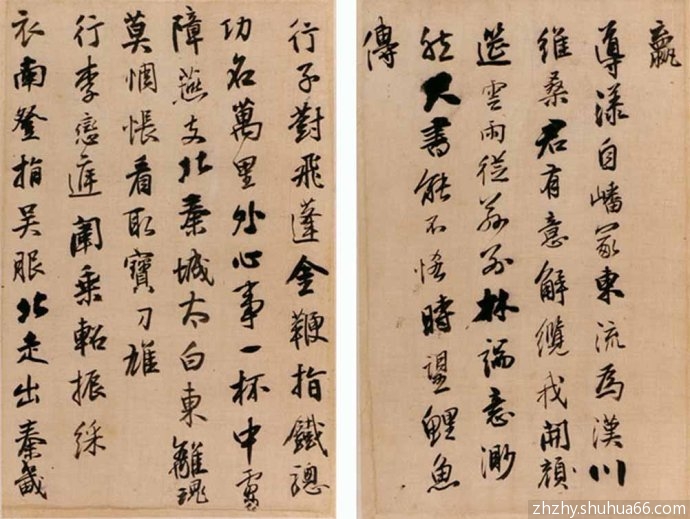 贏
導漾自嶓冢東流為漢川
維桑君有意解纜我開顏
筵雲雨從茲別林端意渺
然尺書能不悋時望鯉魚
傳
行子對飛蓬金鞭指鐵驄
功名萬里外心事一杯中虜
障燕支北秦城太白東離魂
莫惆悵看取寶刀雄
行李戀庭闈乘軺振綵
衣南登指吳服北走出秦畿
zhzhy.shuhua66.com